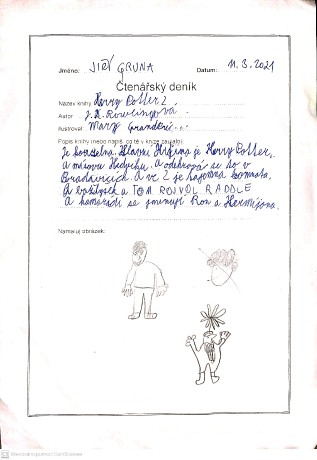 Jméno: JIŘÍ GRUNA Datum: 11. 3. 2021
Čtenářský deník
Název knihy Herry Potter 2.
Autor J. K. Rowlingová
Ilustroval Mary Grandpré
Popis knihy (nebo napiš, co tě v knize zaujalo):
Je kouzelná. Hlavní Hrdina je Herry Potter,
a má sovu Hedviku. A odehrává se to v
Bradavicích. A ve 2 je tajemná komnata.
A TOM ROJVOL RADDLE
A kamarádi se jmenují Ron a Hermijona.
Namaluj obrázek: